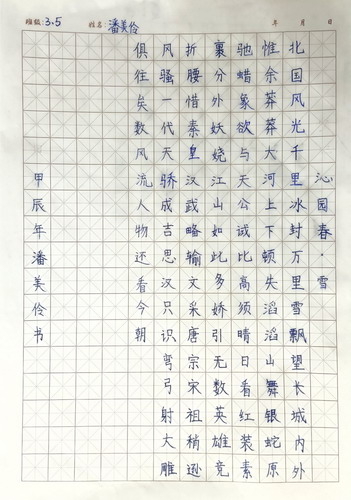 班级: 3.5 姓名: 潘美伶 年 月 日
沁园春·雪
北国风光千里冰封万里雪飘望长城内外
惟余莽莽大河上下顿失滔滔山舞银蛇原
驰蜡象欲与天公试比高须晴日看红装素
裹分外妖娆江山如此多娇引无数英雄竞
折腰惜秦皇汉武略输文采唐宗宋祖稍逊
风骚一代天骄成吉思汉只识弯弓射大雕
俱往矣数风流人物还看今朝
甲辰年潘美伶书